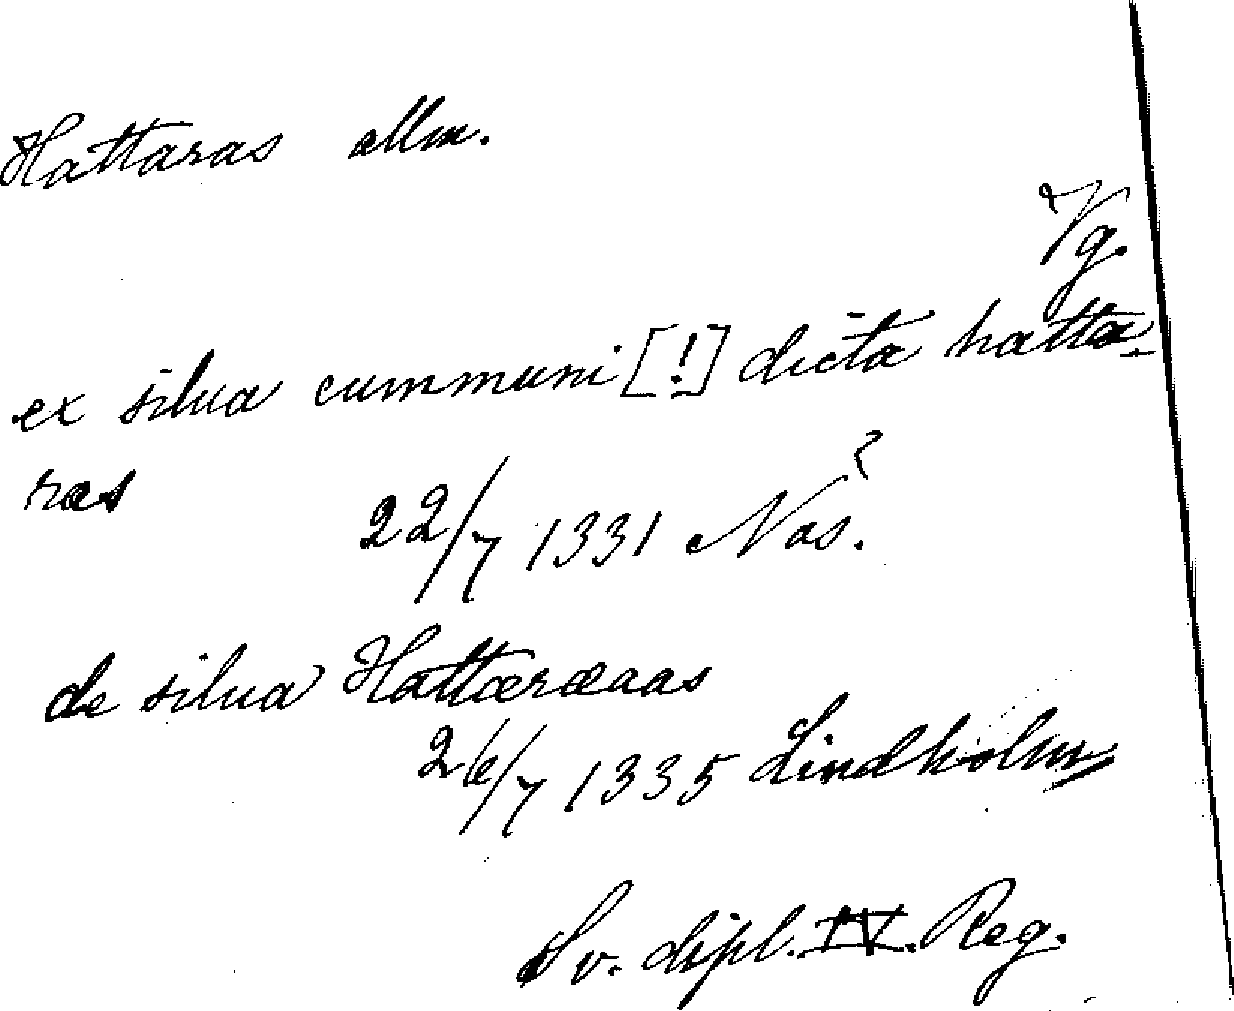 Hattaras allm.
Vg.
ex silua cummuni [!] dicta hatta-
ras
22/7 1331 Nos?
de silua Hattæræaas
26/7 1335 Lindholm
Sv. dipl. IV. Reg.